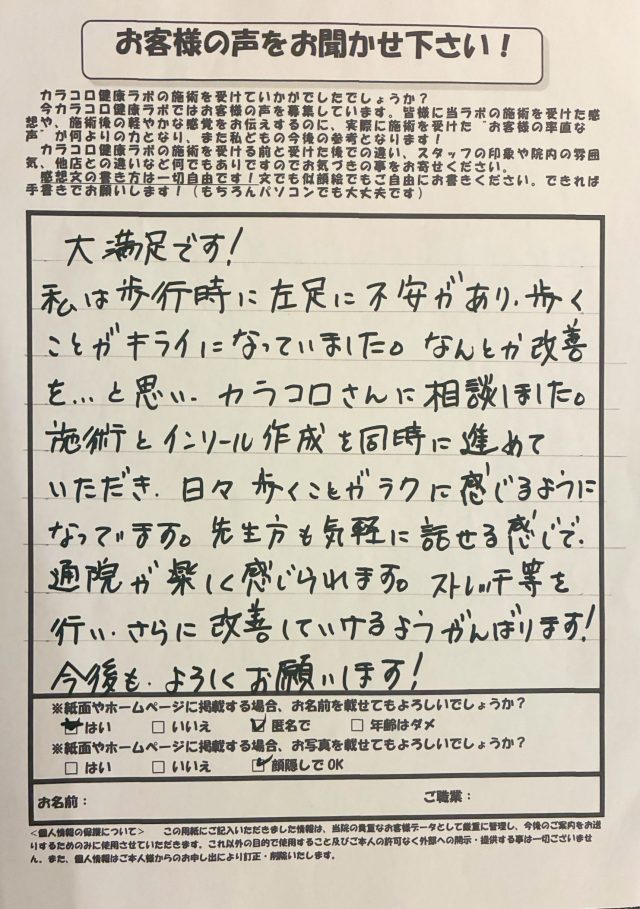 お客様の声をお聞かせ下さい！
カラコロ健康ラボの施術を受けていかがでしたでしょうか？
今カラコロ健康ラボではお客様の声を募集しています。皆様に当ラボの施術を受けた感
想や、施術後の軽やかな感覚をお伝えするのに、実際に施術を受けた“お客様の率直な
声”が何よりの力となり、また私どもの今後の参考となります！
カラコロ健康ラボの施術を受ける前と受けた後での違い、スタッフの印象や院内の雰囲
気、他店との違いなど何でもありですのでお気づきの事をお寄せください。
感想文の書き方は一切自由です！文でも似顔絵でもご自由にお書きください。できれば
手書きでお願いします！（もちろんパソコンでも大丈夫です）
大満足です！
私は歩行時に左足に不安があり、歩く
ことがキライになっていました。なんとか改善
を...と思い、カラコロさんに相談しました。
施術とインソール作成を同時に進めて
いただき、日々歩くことがラクに感じるように
なっています。先生方も気軽に話せる感じで、
通院が楽しく感じられます。ストレッチ等を
行い、さらに改善していけるようがんばります！
今後も、よろしくお願いします！
※紙面やホームページに掲載する場合、お名前を載せてもよろしいでしょうか？
☑はい □いいえ ☑匿名で □年齢はダメ
※紙面やホームページに掲載する場合、お写真を載せてもよろしいでしょうか？
□はい □いいえ ☑顔隠しでOK
お名前： ご職業：
＜個人情報の保護について＞ この用紙にご記入いただきました情報は、当院の貴重なお客様データとして厳重に管理し、今後のご案内をお送
りするためのみに使用させていただきます。これ以外の目的で使用すること及びご本人の許可なく外部への開示・提供する事は一切ございませ
ん。また、個人情報はご本人様からのお申し出により訂正・削除いたします。